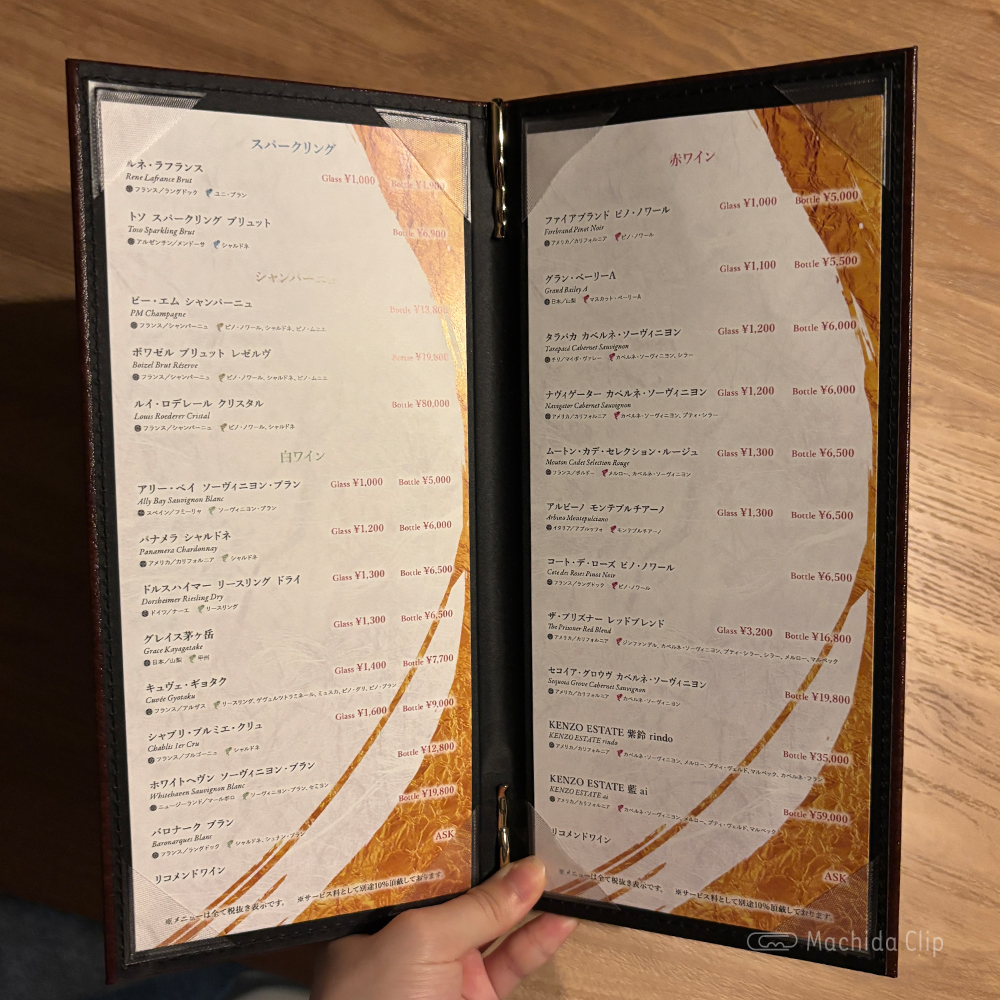 スパークリング
ルネ・ラフランス
Rene Lafrance Brut
Glass ¥1,000 Bottle
フランス／ラングドック ユニ・ブラン
トソ スパークリング ブリュット
Toso Sparkling Brut
Bottle ¥6,900
アルゼンチン／メンドーサ シャルドネ
シャンパーニュ
ピー・エム シャンパーニュ
PM Champagne
Bottle ¥13,800
フランス／シャンパーニュ ピノ・ノワール、シャルドネ、ピノ・ムニエ
ボワゼル ブリュット レゼルヴ
Boizel Brut Réserve
Bottle ¥19,800
フランス／シャンパーニュ ピノ・ノワール、シャルドネ、ピノ・ムニエ
ルイ・ロデレール クリスタル
Louis Roederer Cristal
Bottle ¥80,000
フランス／シャンパーニュ ピノ・ノワール、シャルドネ
白ワイン
アリー・ベイ ソーヴィニヨン・ブラン
Ally Bay Sauvignon Blanc
Glass ¥1,000 Bottle ¥5,000
スペイン／フミーリャ ソーヴィニヨン・ブラン
パナメラ シャルドネ
Panamera Chardonnay
Glass ¥1,200 Bottle ¥6,000
アメリカ／カリフォルニア シャルドネ
ドルスハイマー リースリング ドライ
Dorsheimer Riesling Dry
Glass ¥1,300 Bottle ¥6,500
ドイツ／ナーエ リースリング
グレイス茅ヶ岳
Grace Kayagatake
Glass ¥1,300 Bottle ¥6,500
日本／山梨 甲州
キュヴェ・ギョタク
Cuvée Gyotaku
Glass ¥1,400 Bottle ¥7,700
フランス／アルザス リースリング、ゲヴュルツトラミネール、ミュスカ、ピノ・グリ、ピノ・ブラン
シャブリ・プルミエ・クリュ
Chablis 1er Cru
Glass ¥1,600 Bottle ¥9,000
フランス／ブルゴーニュ シャルドネ
ホワイトヘヴン ソーヴィニヨン・ブラン
Whitehaven Sauvignon Blanc
Bottle ¥12,800
ニュージーランド／マールボロ ソーヴィニヨン・ブラン、セミヨン
バロナーク ブラン
Baronarques Blanc
Bottle ¥19,800
フランス／ラングドック シャルドネ、シュナン・ブラン
リコメンドワイン
ASK
※メニューは全て税抜き表示です。 ※サービス料として別途10%頂戴しております。
赤ワイン
ファイアブランド ピノ・ノワール
Firebrand Pinot Noir
Glass ¥1,000 Bottle ¥5,000
アメリカ／カリフォルニア ピノ・ノワール
グラン・ベーリーA
Grand Bailey A
Glass ¥1,100 Bottle ¥5,500
日本／山梨 マスカット・ベーリーA
タラパカ カベルネ・ソーヴィニヨン
Tarapacá Cabernet Sauvignon
Glass ¥1,200 Bottle ¥6,000
チリ／マイポ・ヴァレー カベルネ・ソーヴィニヨン、シラー
ナヴィゲーター カベルネ・ソーヴィニヨン
Navigator Cabernet Sauvignon
Glass ¥1,200 Bottle ¥6,000
アメリカ／カリフォルニア カベルネ・ソーヴィニヨン、プティ・シラー
ムートン・カデ・セレクション・ルージュ
Mouton Cadet Selection Rouge
Glass ¥1,300 Bottle ¥6,500
フランス／ボルドー メルロー、カベルネ・ソーヴィニヨン
アルビーノ モンテプルチアーノ
Arbino Montepulciano
Glass ¥1,300 Bottle ¥6,500
イタリア／アブルッツォ モンテプルチアーノ
コート・デ・ローズ ピノ・ノワール
Cote des Roses Pinot Noir
Bottle ¥6,500
フランス／ラングドック ピノ・ノワール
ザ・プリズナー レッドブレンド
The Prisoner Red Blend
Glass ¥3,200 Bottle ¥16,800
アメリカ／カリフォルニア ジンファンデル、カベルネ・ソーヴィニヨン、プティ・シラー、シラー、メルロー、マルベック
セコイア・グロウヴ カベルネ・ソーヴィニヨン
Sequoia Grove Cabernet Sauvignon
Bottle ¥19,800
アメリカ／カリフォルニア カベルネ・ソーヴィニヨン
KENZO ESTATE 紫鈴 rindo
KENZO ESTATE rindo
Bottle ¥35,000
アメリカ／カリフォルニア カベルネ・ソーヴィニヨン、メルロー、プティ・ヴェルド、マルベック、カベルネ・フラン
KENZO ESTATE 藍 ai
KENZO ESTATE ai
Bottle ¥59,000
アメリカ／カリフォルニア カベルネ・ソーヴィニヨン、メルロー、プティ・ヴェルド、マルベック
リコメンドワイン
ASK
※メニューは全て税抜き表示です。 ※サービス料として別途10%頂戴しております。
Machida Clip